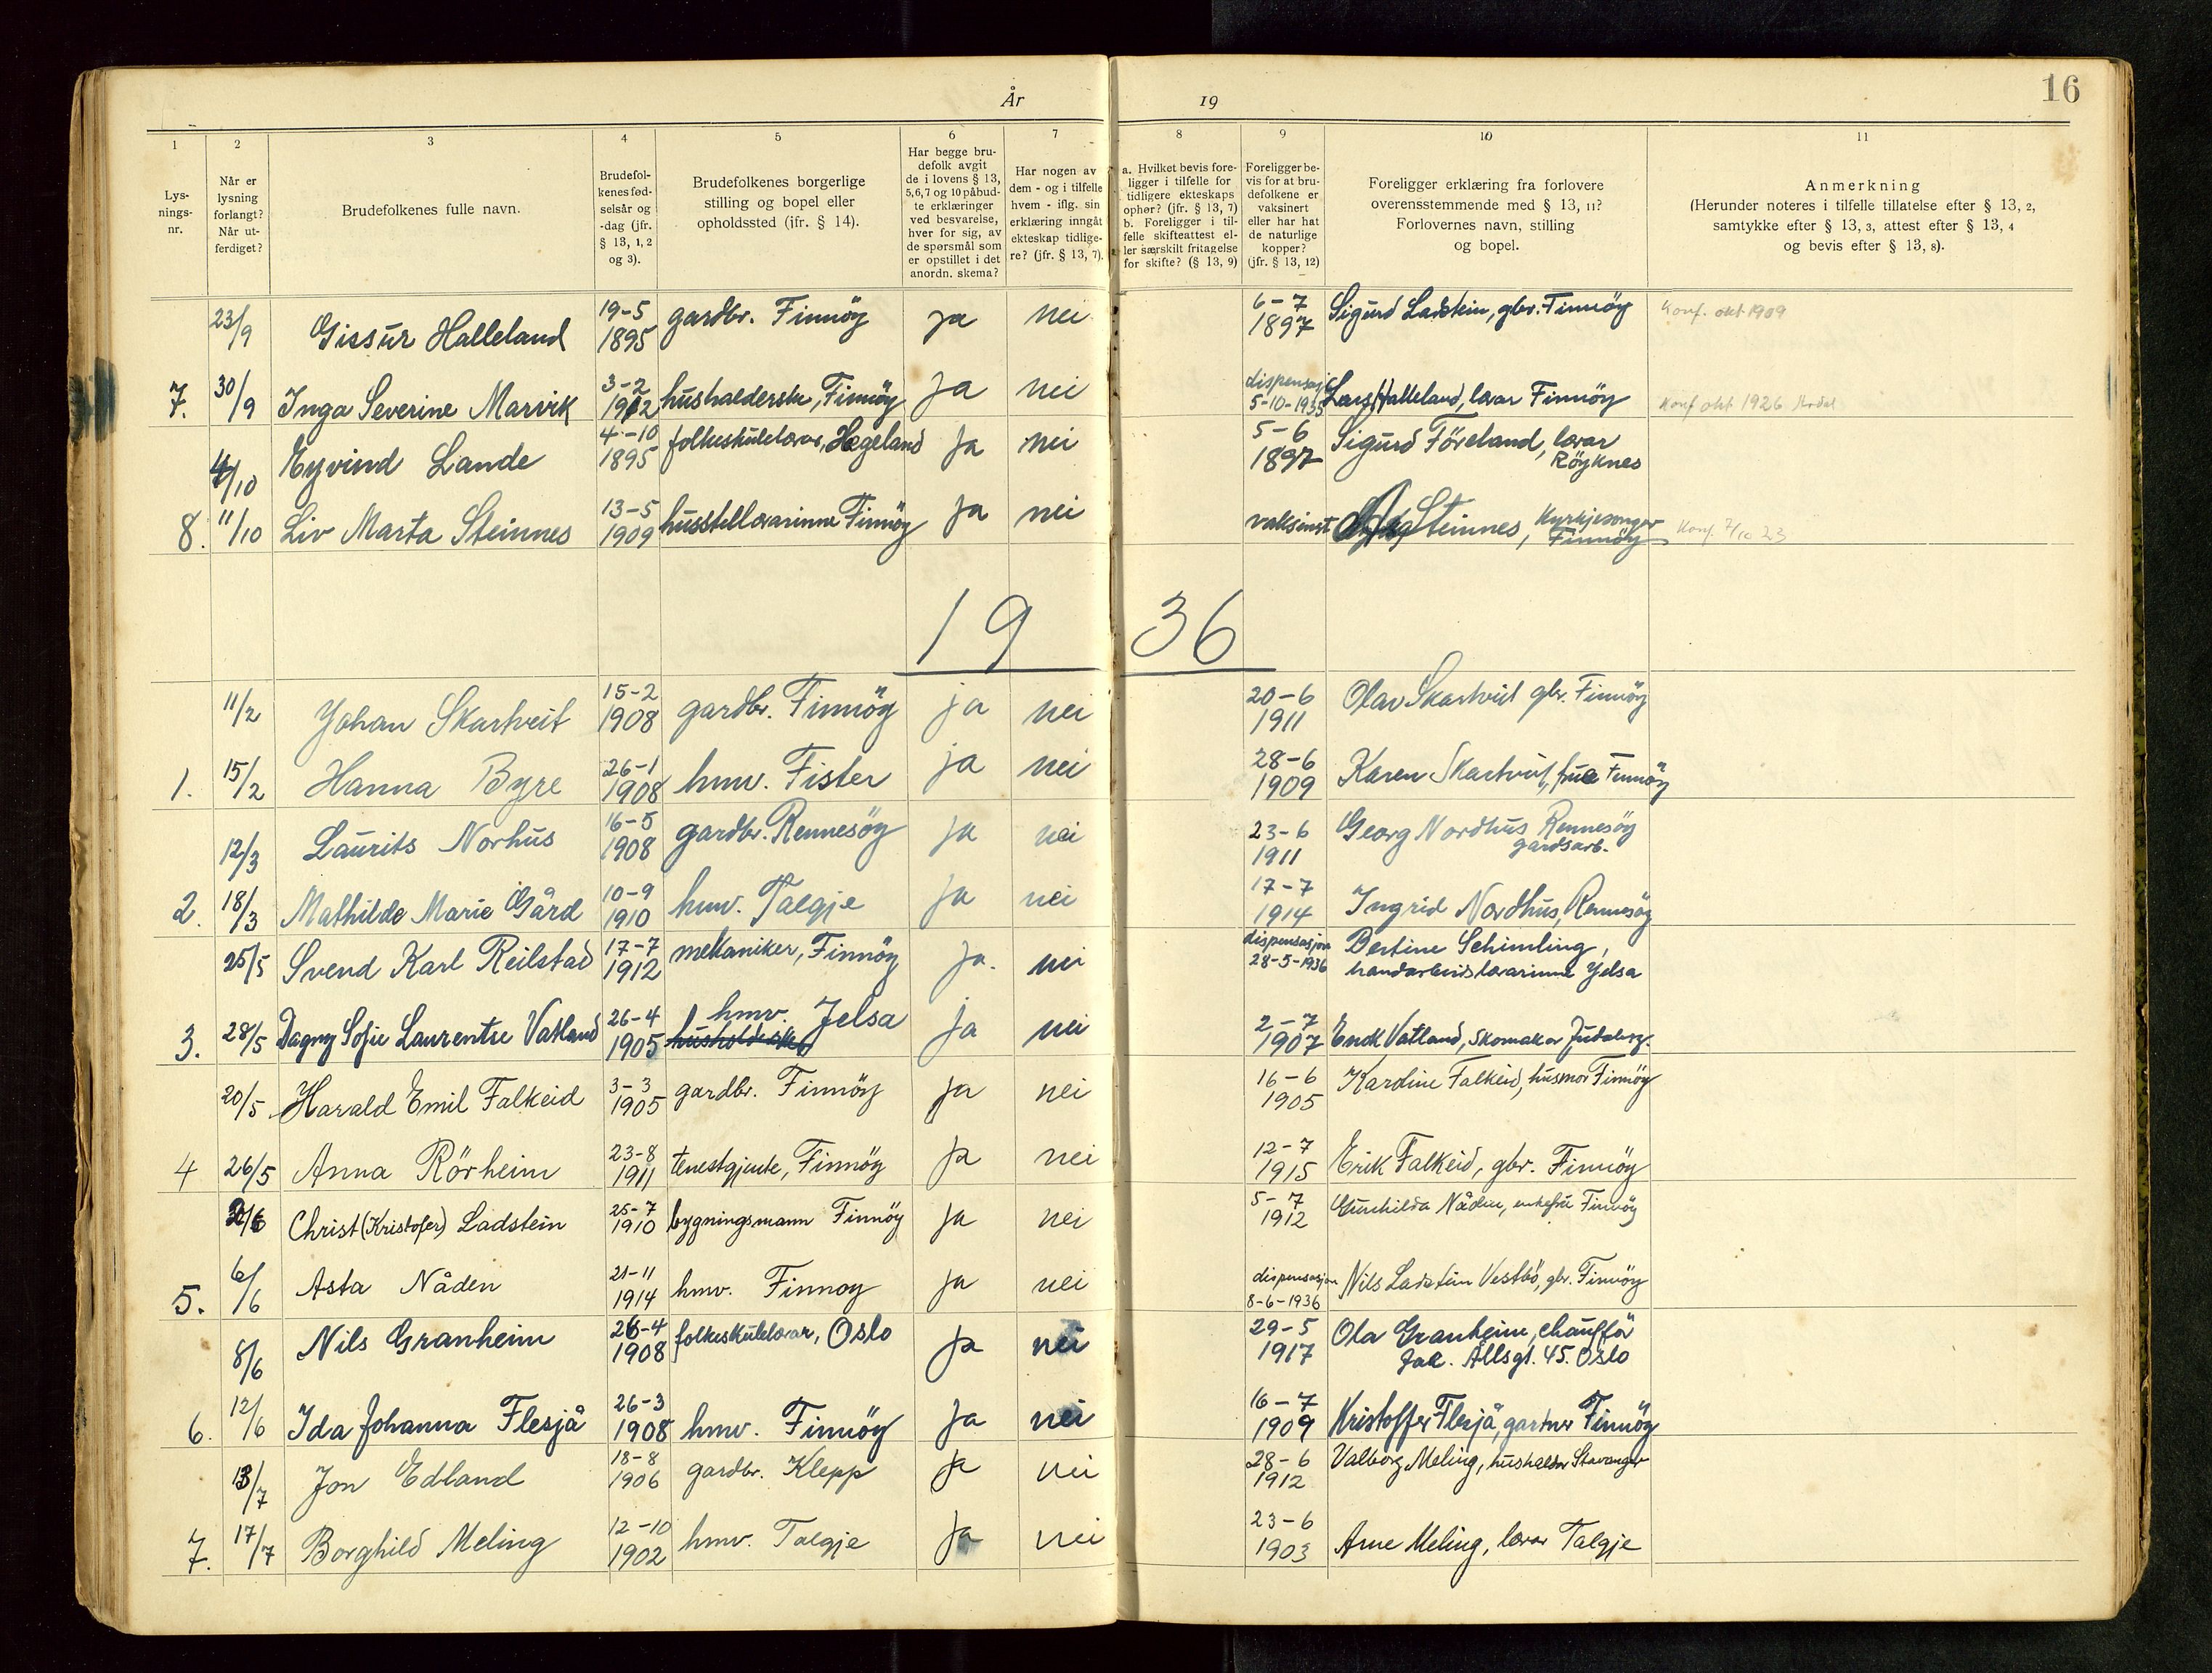 16
År 19
1 2 3 4 5 6 7 8 9 10 11
Lys-
nings-
nr.
Når er
lysning
forlangt?
Når ut-
ferdiget?
Brudefolkenes fulle navn.
Brudefol-
kenes fød-
selsår og
-dag (jfr.
§ 13, 1, 2
og 3).
Brudefolkenes borgerlige
stilling og bopel eller
opholdssted (jfr. § 14).
Har begge bru-
defolk avgit
de i lovens § 13,
5,6,7 og 10 påbud-
te erklæringer
ved besvarelse,
hver for sig, av
de spørsmål som
er opstillet i det
anordn. skema?
Har nogen av
dem - og i tilfelle
hvem - iflg. sin
erklæring inngåt
ekteskap tidlige-
re? (jfr. § 13, 7).
a. Hvilket bevis fore-
ligger i tilfelle for
tidligere ekteskaps
ophør? (jfr. § 13, 7)
b. Foreligger i til-
felle skifteattest el-
ler særskilt fritagelse
for skifte? (§ 13, 9)
Foreligger be-
vis for at bru-
defolkene er
vaksinert
eller har hat
de naturlige
kopper?
(jfr. § 13, 12)
Foreligger erklæring fra forlovere
overensstemmende med § 13, 11?
Forlovernes navn, stilling
og bopel.
Anmerkning
(Herunder noteres i tilfelle tillatelse efter § 13, 2,
samtykke efter § 13, 3, attest efter § 13, 4
og bevis efter § 13, 8).
23/9 Gissur Halleland 19-5 1895 gardbr. Finnöy ja nei 6-7 1897 Sigurd Ladstein, gbr. Finnöy Konf. okt 1909
7. 30/9 Inga Severine Marvik 3-2 1912 hushalderske, Finnöy ja nei dispensasj 5-10-1935 Lars Halleland, lærar Finnöy Konf okt 1926
4/10 Eyvind Lande 4-10 1895 folkeskulelærar, Hægeland ja nei 5-6 1897 Sigurd Föreland, lærar Röyknes
8. 11/10 Liv Marta Steinnes 13-5 1909 husstellærarinne Finnöy ja nei vaksinert Steinnes, Kyrkjesongar Finnöy Konf. 7/10 23
1936
11/2 Johan Skartveit 15-2 1908 gardbr. Finnöy ja nei 20-6 1911 Olav Skartveit gbr. Finnöy
1. 15/2 Hanna Byre 26-1 1908 hmv. Fister ja nei 28-6 1909 Karen Skartveit, frue Finnöy
12/3 Laurits Norhus 16-5 1908 gardbr. Rennesöy ja nei 23-6 1911 Georg Nordhus Rennesöy gardsarb.
2. 18/3 Mathilde Marie Gård 10-9 1910 hmv. Talgje ja nei 17-7 1914 Ingrid Nordhus, Rennesöy
25/5 Svend Karl Reilstad 17-7 1912 mekaniker, Finnöy ja. nei dispensasjon 28-5-1936 Bertine Schimling, handarbeidslærarinne Jelsa
3. 28/5 Dagny Sofie Laurentse Vatland 26-4 1905 hmv. Jelsa ja nei 2-7 1907 Endk Vatland, Skomakar Judaberg.
20/5 Harald Emil Falkeid 3-3 1905 gardbr. Finnöy ja nei 16-6 1905 Karoline Falkeid, husmor Finnöy
4 26/5 Anna Rörheim 23-8 1911 tenestgjente, Finnöy ja nei 12-7 1915 Erik Falkeid, gbr. Finnöy
Christ (Kristofer) Ladstein 25-7 1910 bygningsmann Finnöy ja nei 5-7 1912 Gunhilda Nåden, enkefru Finnöy
5. 6/6 Asta Nåden 21-11 1914 hmv. Finnoy ja nei dispensasjon 8-6-1936 Nils Ladstein Vestbö, gbr. Finnöy
8/6 Nils Granheim 26-4 1908 folkeskulelærar, Oslo ja nei 29-5 1917 Ola Granheim, chauffør Jac. Allsgt. 45. Oslo
6. 12/6 Ida Johanna Flesjå 26-3 1908 hmv. Finnöy ja nei 16-7 1909 Kristoffer Flesjå, gartner Finnöy
13/7 Jon Edland 18-8 1906 gardbr. Klepp ja nei 28-6 1912 Valborg Meling, Stavanger
7. 17/7 Borghild Meling 12-10 1902 hmv. Talgje ja nei 23-6 1903 Arne Meling, lærar Talgje